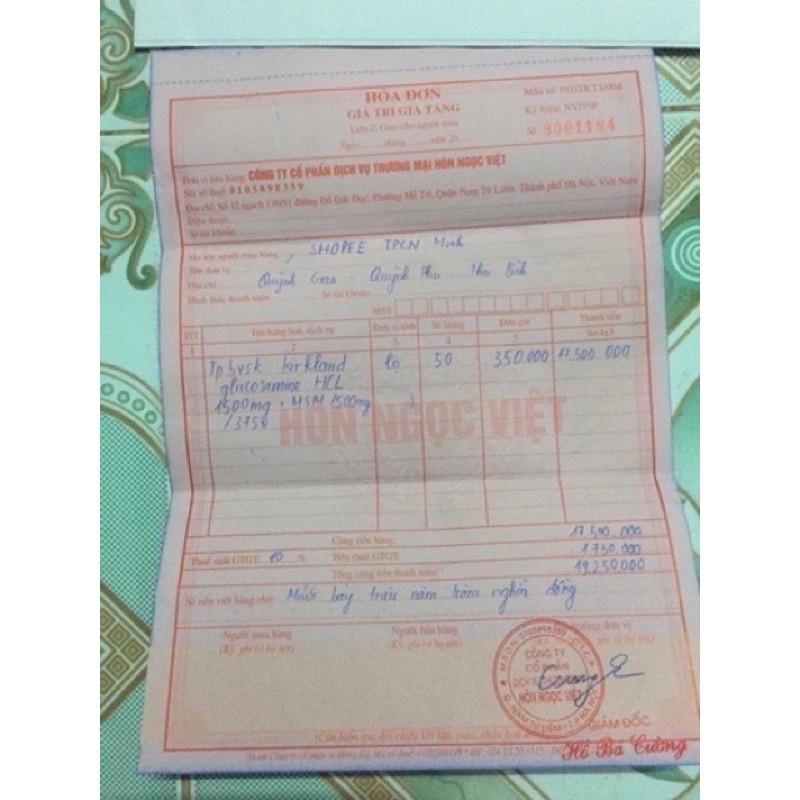 HÓA ĐƠN
GIÁ TRỊ GIA TĂNG
Liên 2: Giao cho người mua
Ngày tháng năm 20
Mẫu số: 01GTKT3/004
Ký hiệu: NV/19P
Số: 0001184
Đơn vị bán hàng: CÔNG TY CỔ PHẦN DỊCH VỤ THƯƠNG MẠI HÒN NGỌC VIỆT
Mã số thuế: 0105898359
Địa chỉ: Số 32 ngách đường Đỗ Đức Dục, Phường Mễ Trì, Quận Nam Từ Liêm, Thành phố Hà Nội, Việt Nam
Điện thoại:
Số tài khoản:
Họ tên người mua hàng: SHOPEE TPCN Minh
Tên đơn vị
Địa chỉ Quỳnh - Quỳnh Phụ - Thái Bình
Hình thức thanh toán: Số tài khoản:
MST:
STT Tên hàng hoá, dịch vụ Đơn vị tính Số lượng Đơn giá Thành tiền
1 2 3 4 5 6=4x5
Tpbvsk kirkland lọ 50 350.000 17.500.000
glucosamine HCL
1500mg + MSM 1500mg
/375v
HÒN NGỌC VIỆT
Cộng tiền hàng: 17.500.000
Thuế suất GTGT: 10 % Tiền thuế GTGT: 1.750.000
Tổng cộng tiền thanh toán: 19.250.000
Số tiền viết bằng chữ: Mười bảy triệu năm trăm nghìn đồng
Người mua hàng Người bán hàng Thủ trưởng đơn vị
(Ký, ghi rõ họ tên) (Ký, ghi rõ họ tên) ghi rõ họ tên)
CÔNG TY
CỔ PHẦN
HÒN NGỌC VIỆT
NAM TỪ LIÊM - T.P HÀ NỘI
GIÁM ĐỐC
Hồ Bá Cường
(Cần kiểm tra, đối chiếu khi lập, giao, nhận hóa đơn)